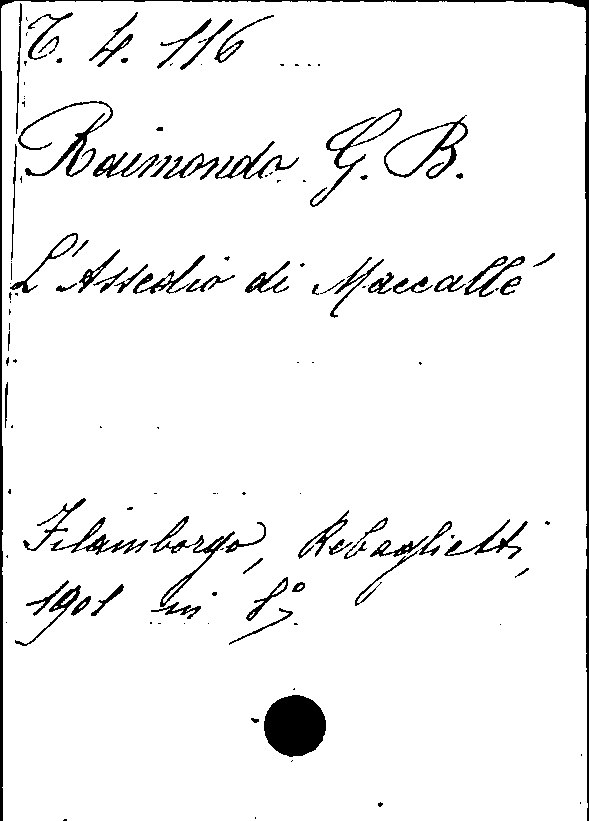 T. 4. 116
Raimondo G. B.
L'Assedio di Maccallé
Filamborgo, Rebaglietti,
1901 in 8º